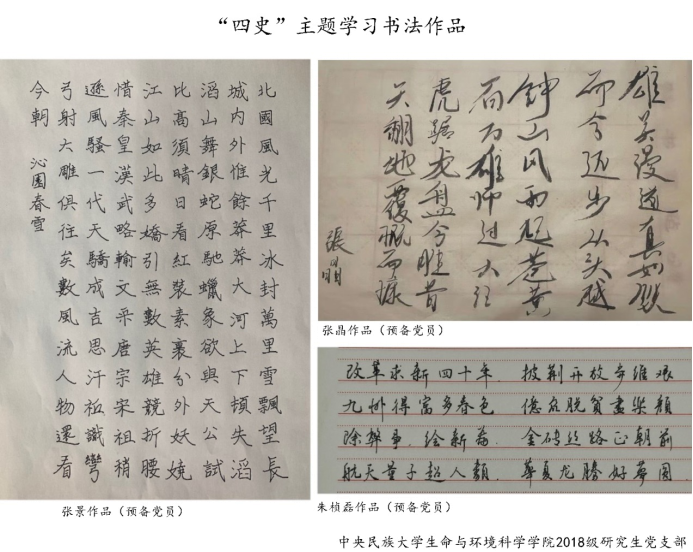 “四史”主题学习书法作品
北國風光千里冰封萬里雪飄望長
城内外惟餘莽莽大河上下頓失滔
滔山舞銀蛇原馳蠟象欲與天公試
比高須晴日看紅裝素裹分外妖嬈
江山如此多嬌引無數英雄競折腰
惜秦皇漢武略輸文采唐宗宋祖稍
遜風騷一代天驕成吉思汗祗識彎
弓射大雕俱往矣數風流人物還看
今朝
沁園春雪
张景作品（预备党员）
雄关漫道真如铁
而今迈步从头越
钟山风雨起苍黄
百万雄师过大江
虎踞龙盘今胜昔
天翻地覆慨而慷
張晶
张晶作品（预备党员）
改革求新四十年 披荆开放步维艰
九州得富多春色 億众脱貧盡笑顏
除弊事 绘新篇 金砖丝路正朝前
航天量子超人類 華夏龙騰好梦圆
朱桢磊作品（预备党员）
中央民族大学生命与环境科学学院2018级研究生党支部